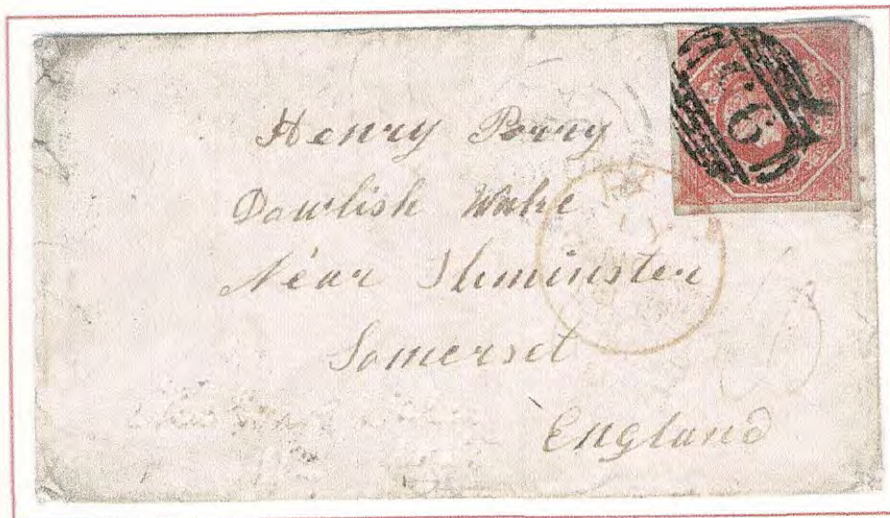 Henry Perry
Dowlish Wake
Near Ilminster
Somerset
England